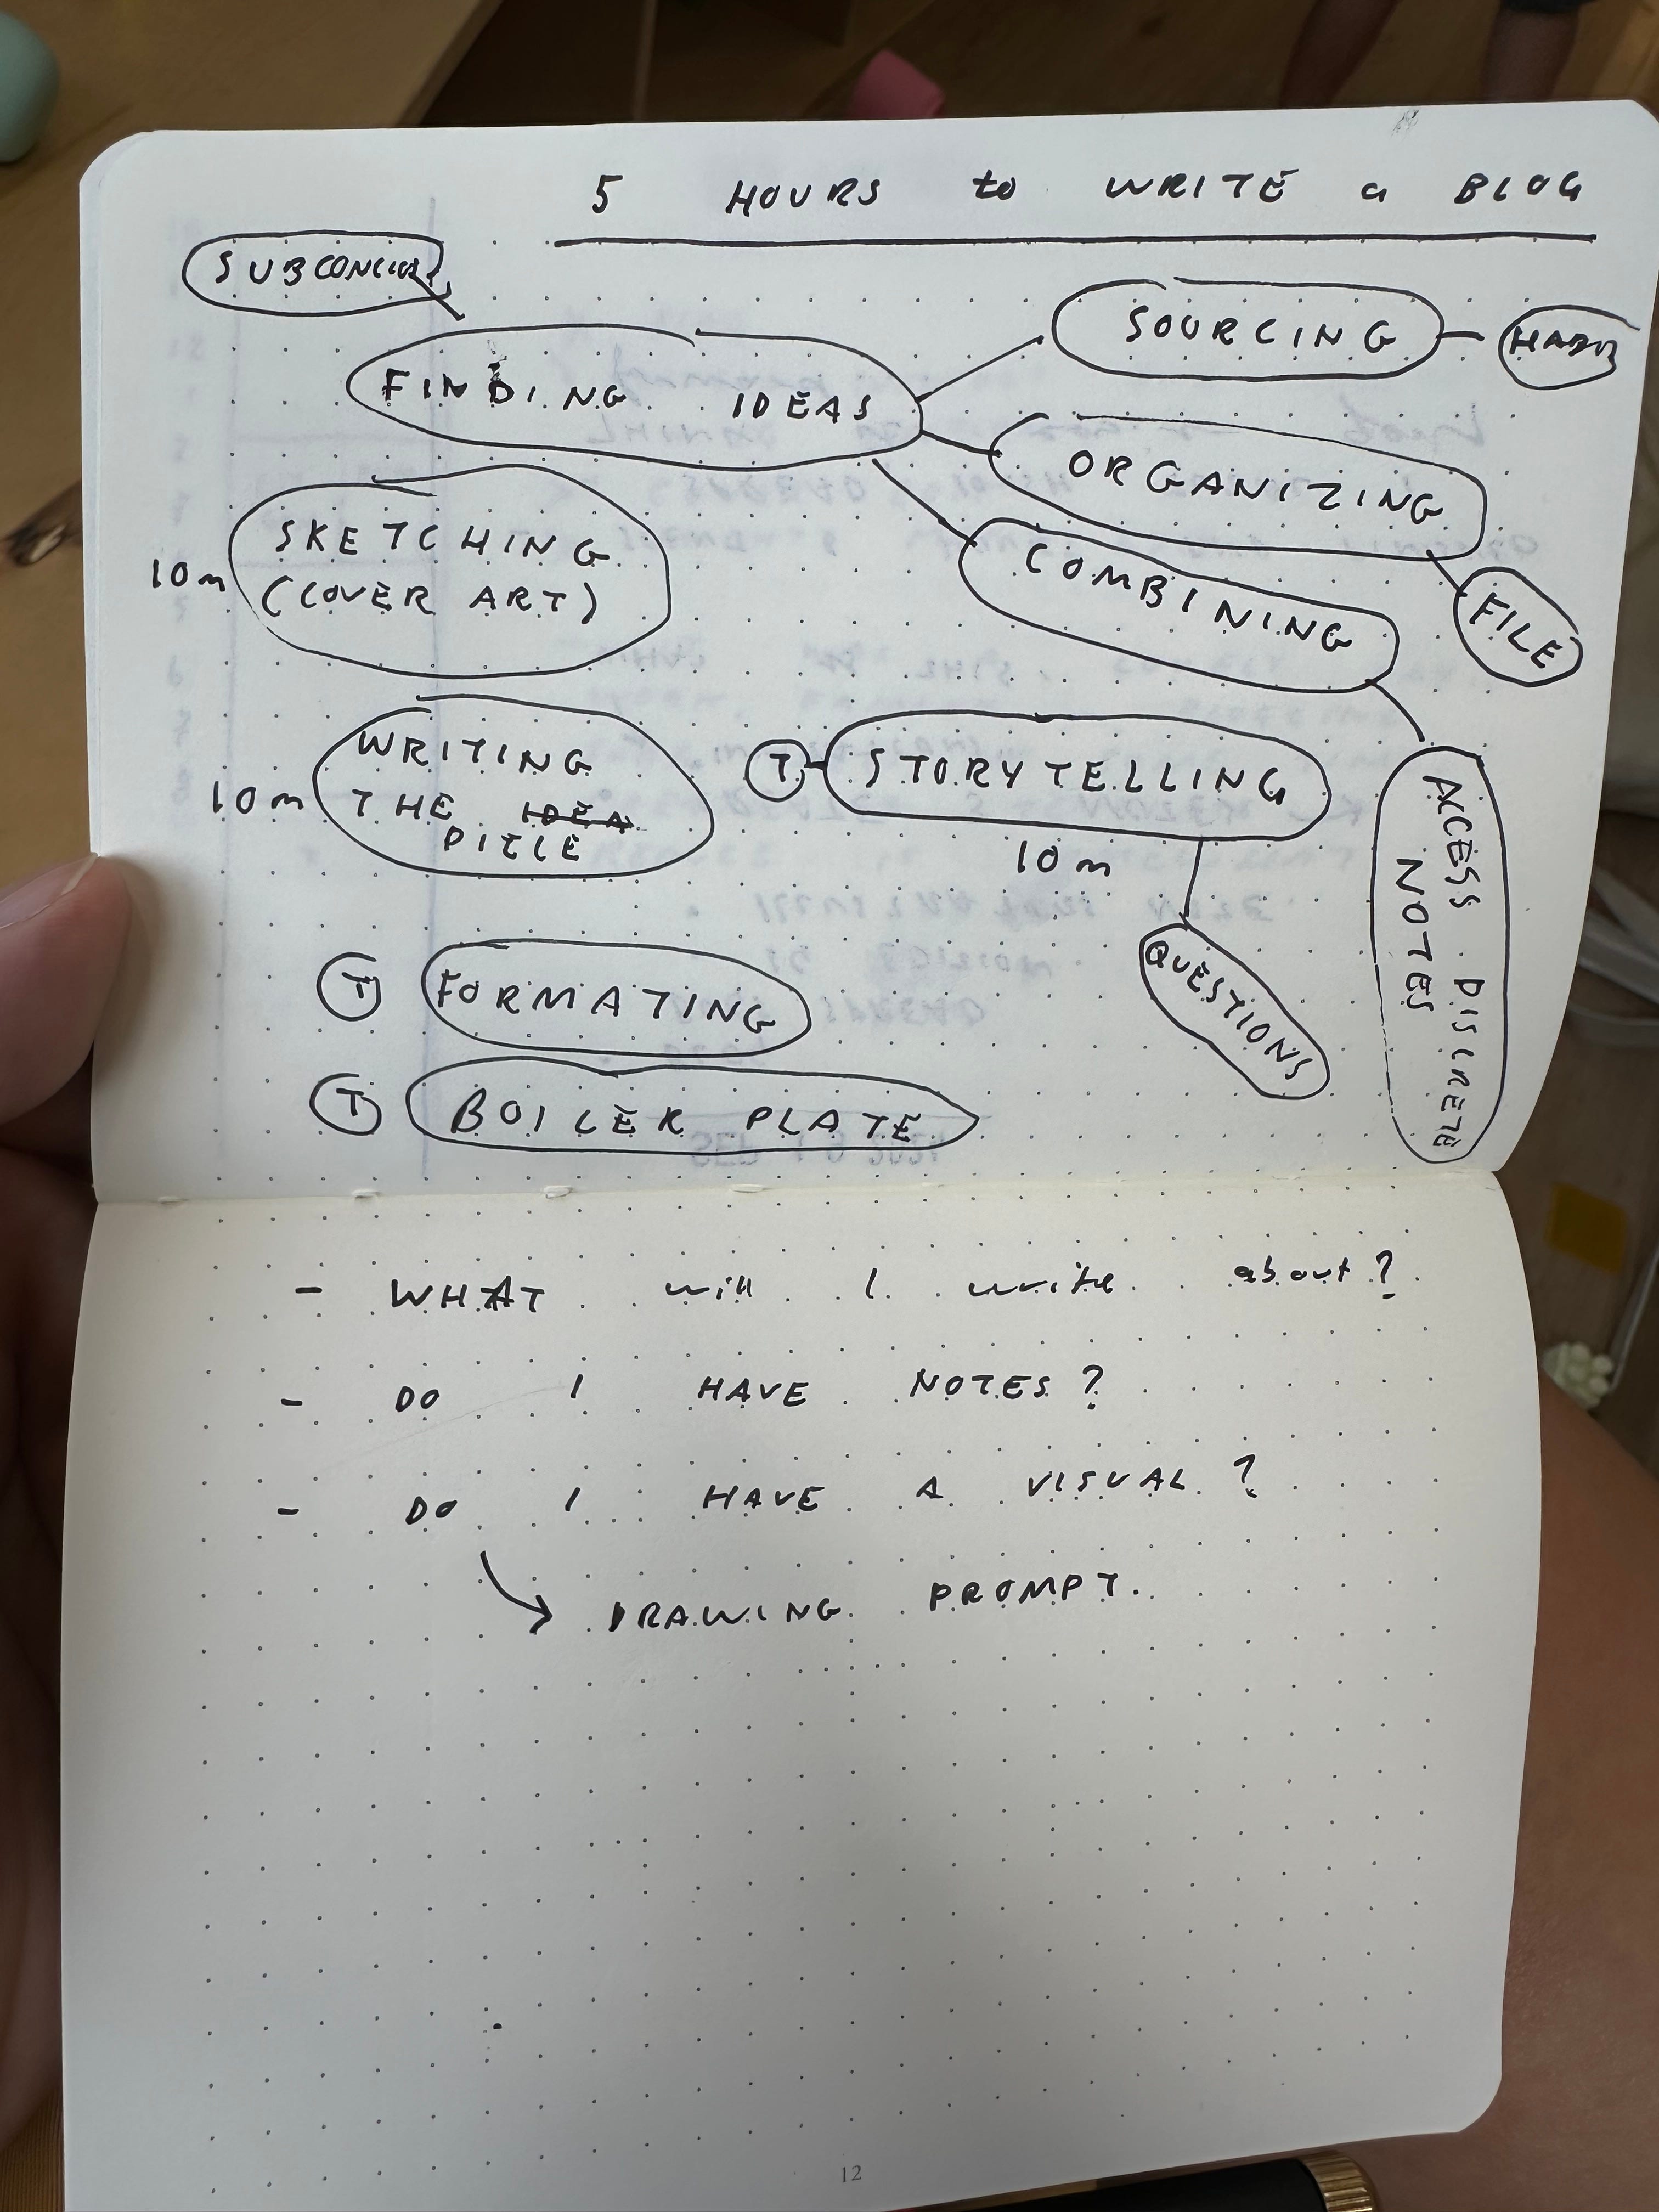 5 HOURS to WRITE a BLOG
SOURCING
FINDING IDEAS
ORGANIZING
SKETCHING
(COVER ART)
10m
COMBINING
FILE
WRITING
THE IDEA
10m
T
STORYTELLING
10m
ACCESS DISCRETE
NOTES
QUESTIONS
T
FORMATING
T
BOILER PLATE
- WHAT will I write about?
- DO I HAVE NOTES?
- DO I HAVE A VISUAL?
DRAWING PROMPT.
12